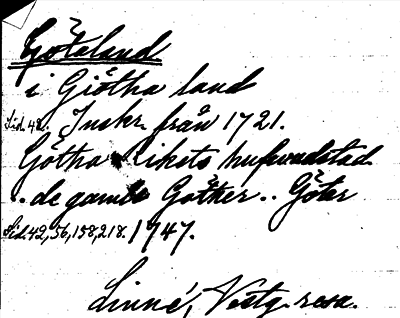 Götaland
i Giötha land
Sid. 48. Inskr. från 1721.
Götha Rikets hufwudstad
. de gamle Gother .. Götar
Sid. 42, 56, 158, 218. 1747.
Linné, Västg. resa.